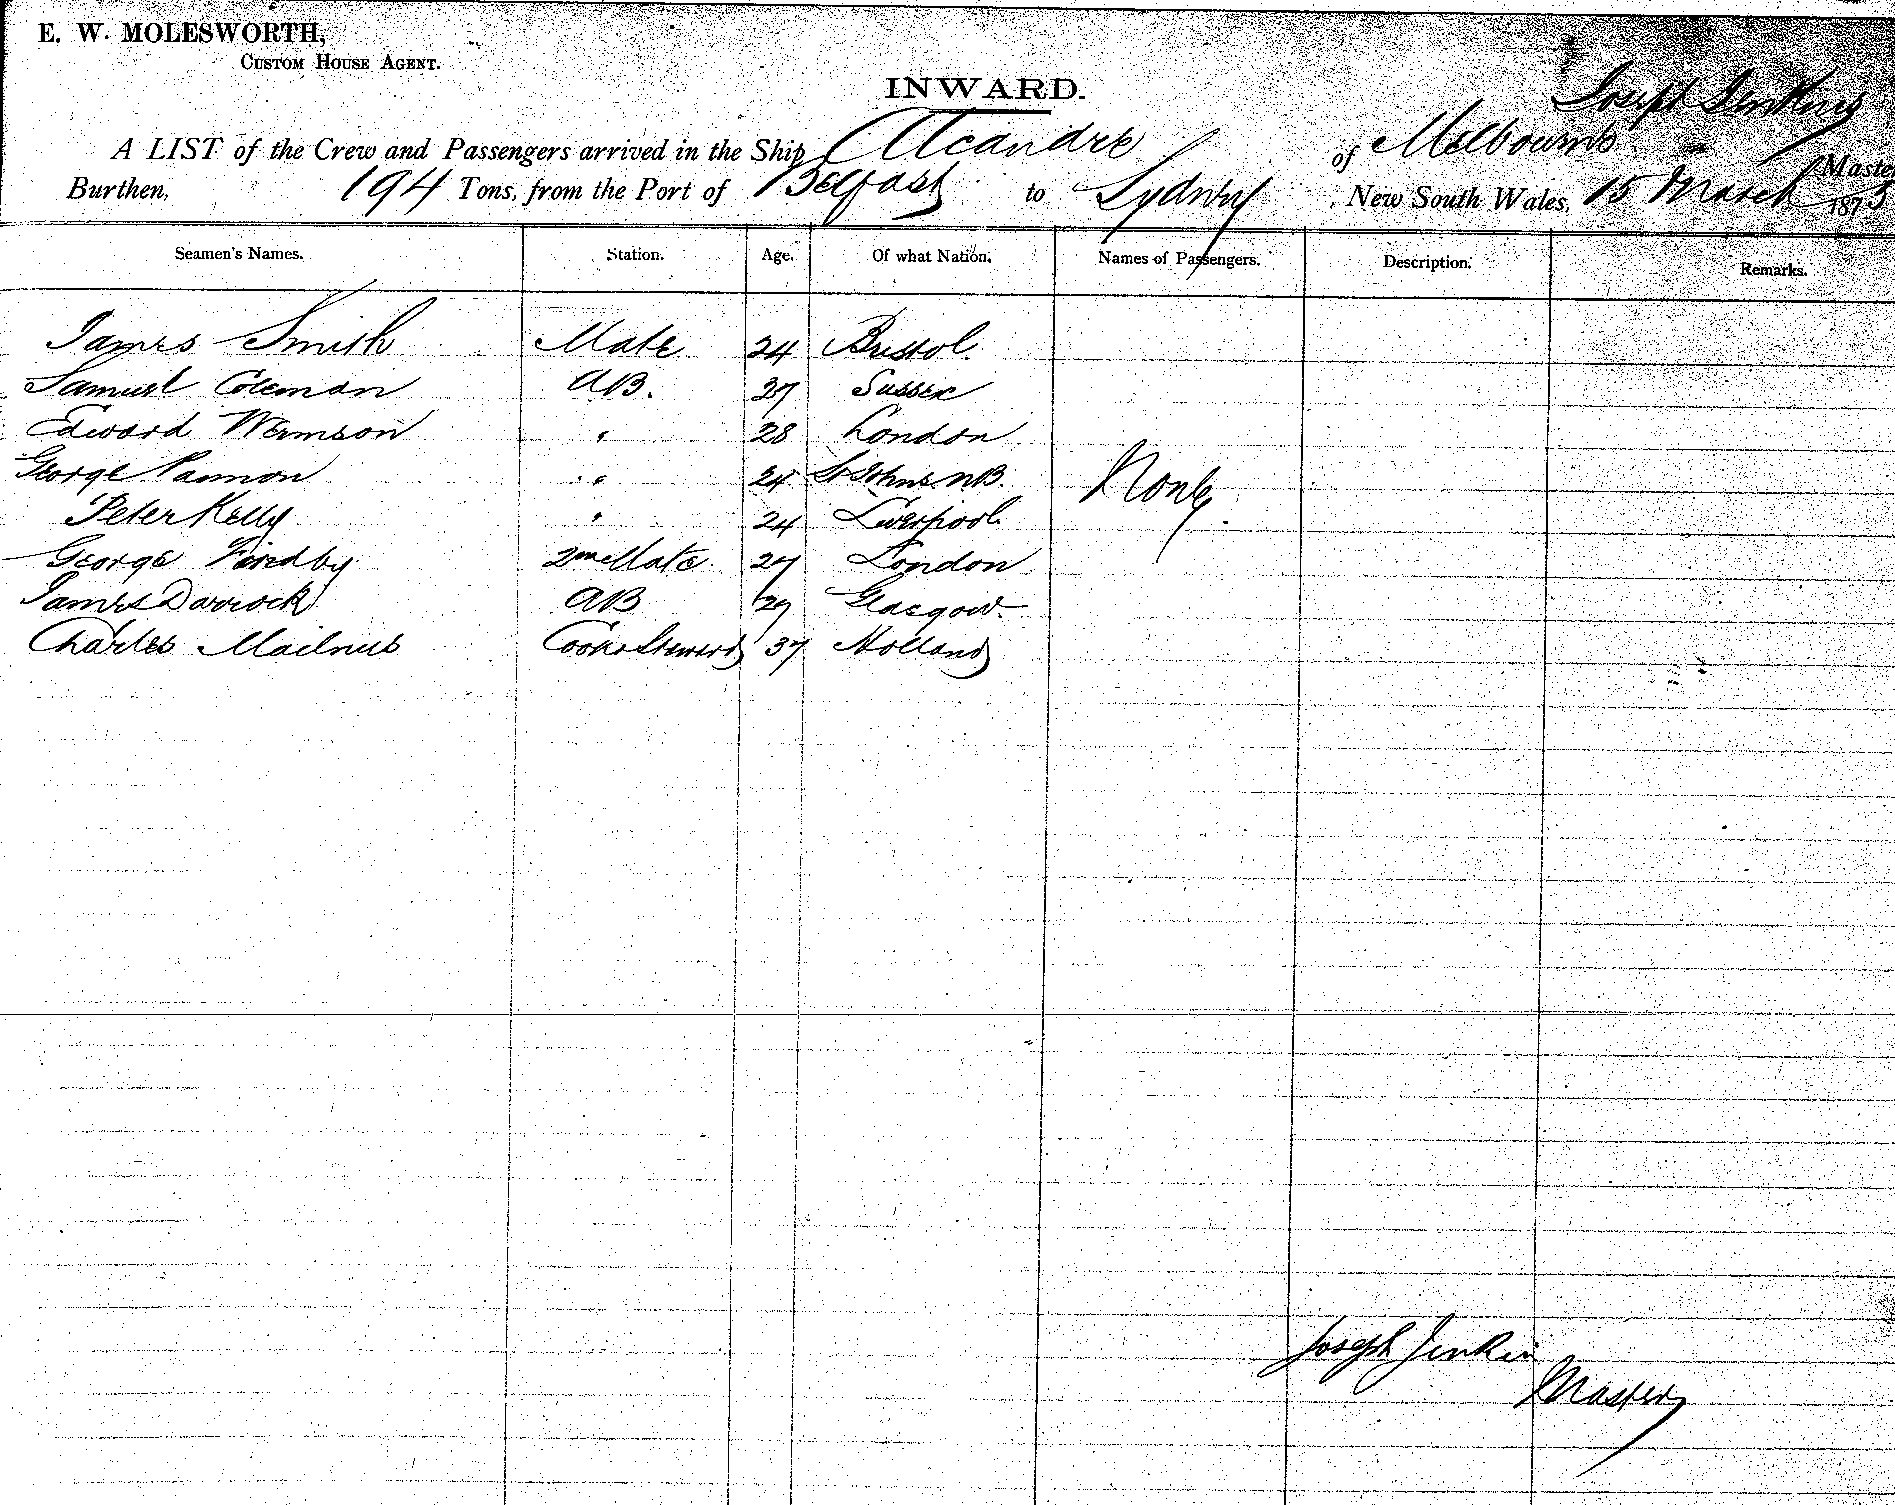 E. W. MOLESWORTH,
CUSTOM HOUSE AGENT.
INWARD.
Joseph Jenkins
A LIST of the Crew and Passengers arrived in the Ship Alcandre of Melbourne Master
Burthen, 194 Tons, from the Port of Belfast to Sydney, New South Wales, 15 March 1875
Seamen's Names. Station. Age. Of what Nation. Names of Passengers. Description. Remarks.
James Smith Mate 24 Bristol
Samuel Coleman AB. 27 Sussex
Edward " 28 London
George " 24 St Johns NB. None
Peter Kelly " 24 Liverpool
George 2nd Mate 27 London
James Darrock AB 29 Glasgow
Charles Cook & Steward 37 Holland
Joseph Jenkin
Master